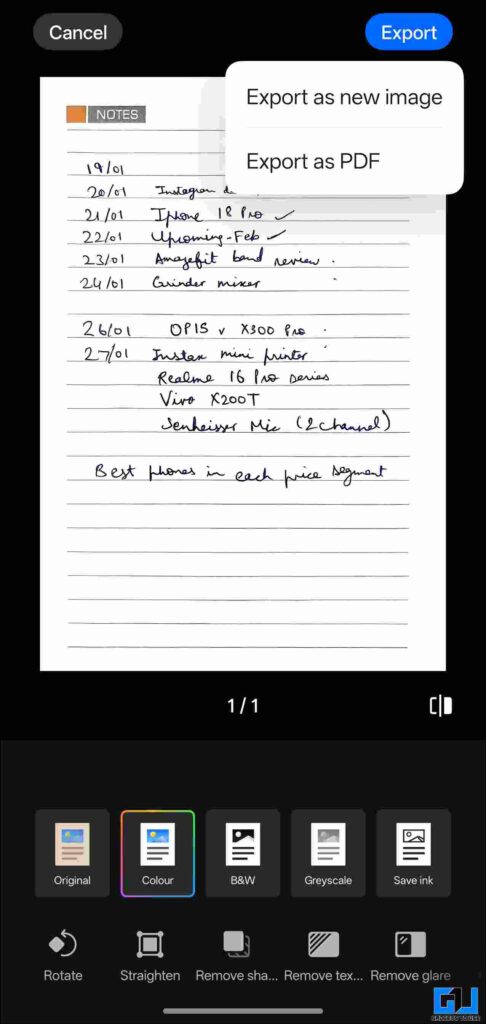 Cancel
Export
Export as new image
Export as PDF
NOTES
19/01
20/01 Instagram
21/01 Iphone 18 Pro ✓
22/01 Upcoming-Feb ✓
23/01 Amazefit band review.
24/01 Grinder mixer
26/01 OP15 v X300 Pro
27/01 Instax mini printer
Realme 16 Pro series
Vivo X200T
Senheisser Mic (2 channel)
Best phones in each price segment
1/1
Original
Colour
B&W
Greyscale
Save ink
Rotate
Straighten
Remove sha...
Remove tex...
Remove glare
GADGETS TO USE